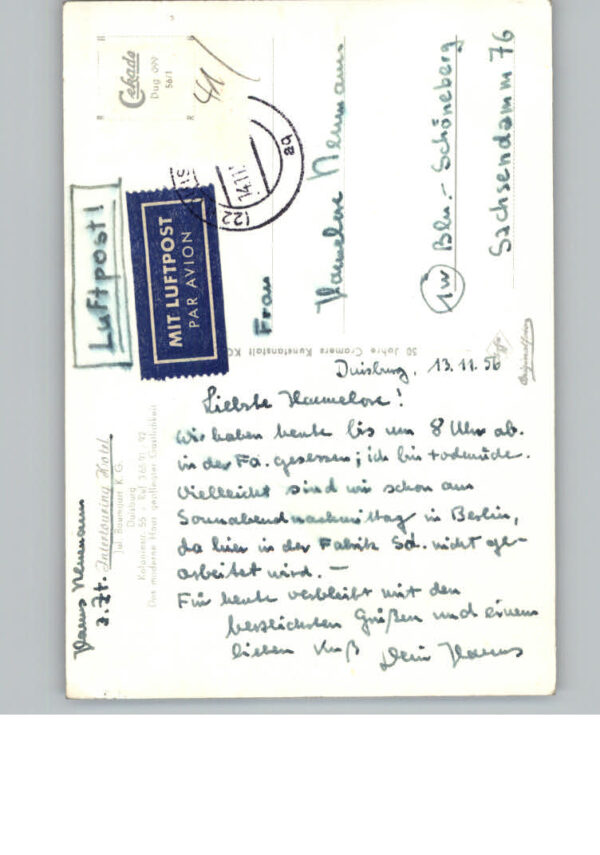 Luftpost!
MIT LUFTPOST
PAR AVION
Cekade
Dug 099
56/1
41/
Frau
Hannelore Neumann
Bln.-Schöneberg
Sachsendamm 76
50 Jahre Cramers Kunstanstalt KG
Hanns Neumann
z. Zt. Intertouring Hotel
Jul. Baumgart K.G.
Duisburg
Das modernste Haus gepflegter Gastlichkeit
Duisburg, 13.11.56
Liebste Hannelore!
Wir haben heute bis um 8 Uhr ab.
in der Fa. gesessen; ich bin todmüde.
Vielleicht sind wir schon am
Sonnabendnachmittag in Berlin,
da hier in der Fabrik Sa. nicht ge-
arbeitet wird. —
Für heute verbleibt mit den
herzlichsten Grüßen und einem
lieben Kuß Dein Hanns